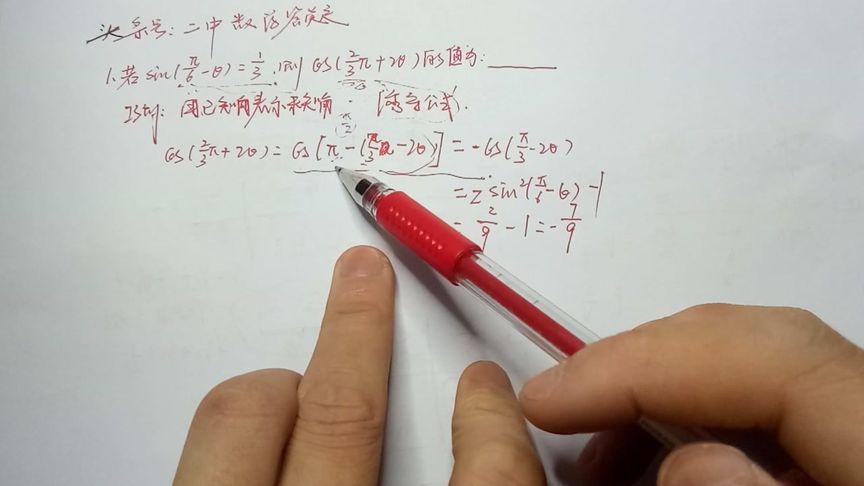 头条号:二中数学
1.若sin(π/6-θ)=1/3,则cos(2/3π+2θ)的值为:______
用已知角表示未知角 [诱导公式].
π/2
cos(2/3π+2θ)=cos[π-(π/3-2θ)]=-cos(π/3-2θ)
=2sin²(π/6-θ)-1
=2/9-1=-7/9